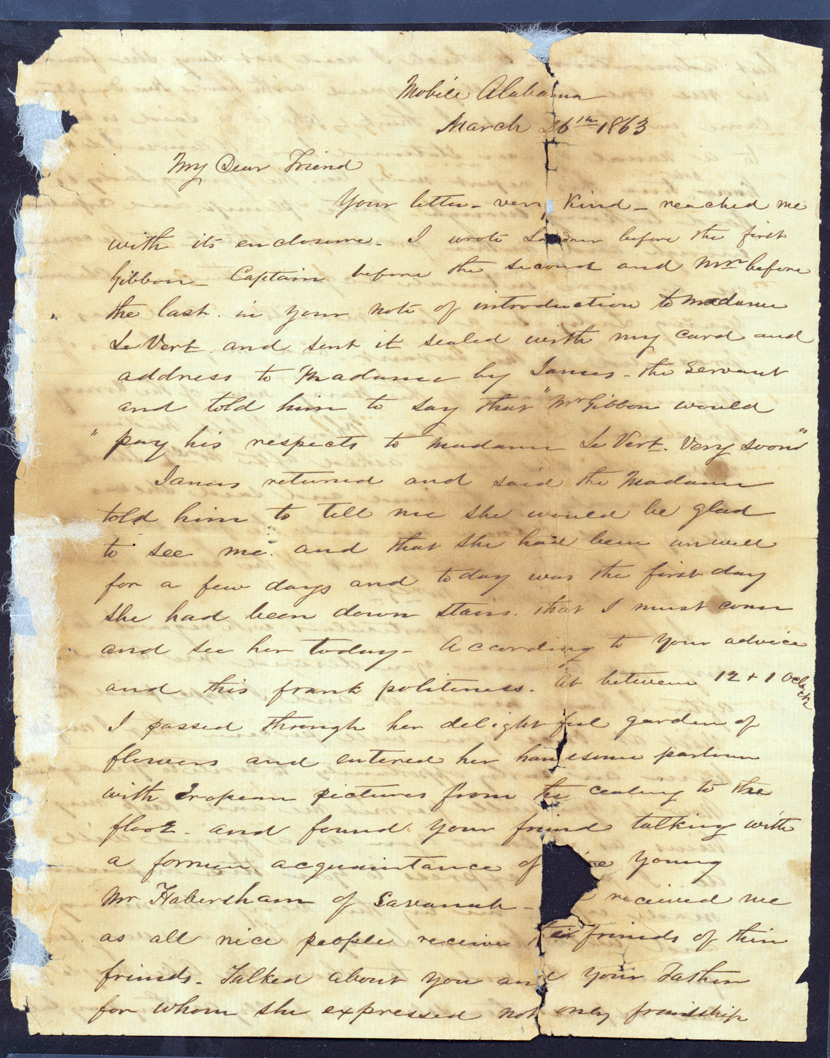 Mobile Alabama
March 26th 1863
My Dear Friend
Your letter - very kind - reached me
with its enclosure. I wrote before the first
Gibbon - Captain before the second and Mr before
the last. in your note of introduction to madame
Le Vert. and sent it sealed with my card and
address to Madame by James - the servant
and told him to say that "Mr Gibbon would
" pay his respects to madame Le Vert. very soon"
James returned and said the Madame
told him to tell me she would be glad
to see me. and that she had been unwell
for a few days and today was the first day
she had been down stairs. that I must come
and see her today - According to your advice
and this frank politeness. At between 12 + 1 Oclock
I passed through her delightful garden of
flowers and entered her handsome parlour
with Eropean pictures from the cealing to the
floor - and found your friend talking with
a former acquaintance of young
Mr Habersham of Savanah - received me
as all nice people receive friends of their
friends. Talked about you and your Father
for whom she expressed not only friendship